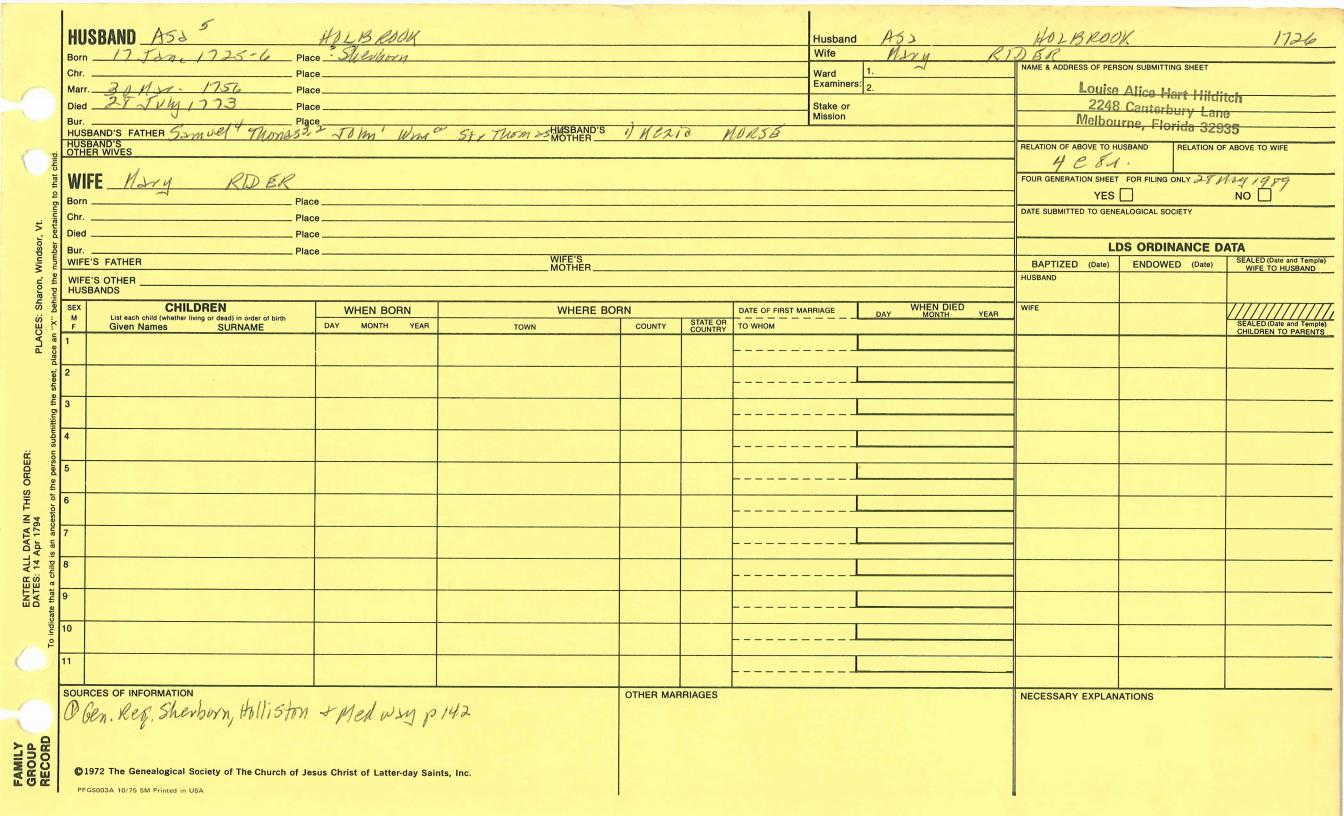 HUSBAND Asa 5 HOLBROOK
Born 17 Jan. 1725-6 Place Sherborn
Chr. Place
Marr. 30 Mar. 1756 Place
Died 28 July 1773 Place
Bur. Place
HUSBAND'S FATHER Samuel 4 Thomas 3, 2 John 1 Wm Thomas HUSBAND'S MOTHER MORSE
HUSBAND'S OTHER WIVES
Husband Asa HOLBROOK 1726
Wife Mary RIDER
Ward Examiners: 1. 2.
Stake or Mission
NAME & ADDRESS OF PERSON SUBMITTING SHEET
Louise Alice Hart Hilditch
2248 Canterbury Lane
Melbourne, Florida 32935
RELATION OF ABOVE TO HUSBAND RELATION OF ABOVE TO WIFE
4 C 8 r.
FOUR GENERATION SHEET FOR FILING ONLY 28 May 1989
YES NO
DATE SUBMITTED TO GENEALOGICAL SOCIETY
WIFE Mary RIDER
Born Place
Chr. Place
Died Place
Bur. Place
WIFE'S FATHER WIFE'S MOTHER
WIFE'S OTHER HUSBANDS
LDS ORDINANCE DATA
BAPTIZED (Date) ENDOWED (Date) SEALED (Date and Temple) WIFE TO HUSBAND
HUSBAND
WIFE
SEALED (Date and Temple) CHILDREN TO PARENTS
SEX M F
CHILDREN
List each child (whether living or dead) in order of birth
Given Names SURNAME
WHEN BORN
DAY MONTH YEAR
WHERE BORN
TOWN COUNTY STATE OR COUNTRY
DATE OF FIRST MARRIAGE
TO WHOM
WHEN DIED
DAY MONTH YEAR
1
2
3
4
5
6
7
8
9
10
11
SOURCES OF INFORMATION
① Gen. Reg. Sherborn, Holliston + Medway p 142
OTHER MARRIAGES
NECESSARY EXPLANATIONS
©1972 The Genealogical Society of The Church of Jesus Christ of Latter-day Saints, Inc.
PFGS003A 10/75 5M Printed in USA
FAMILY GROUP RECORD
ENTER ALL DATA IN THIS ORDER:
DATES: 14 Apr 1794 PLACES: Sharon, Windsor, Vt.
To indicate that a child is an ancestor of the person submitting the sheet, place an "X" behind the number pertaining to that child.